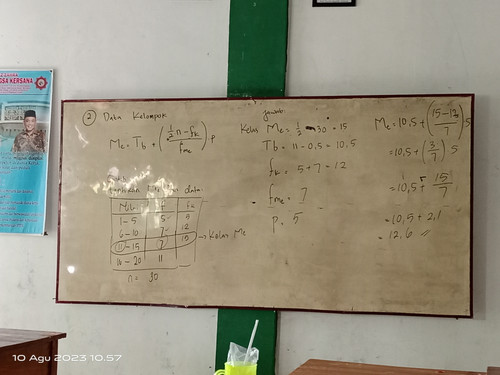 GSA KERSANA
② Data Kelompok
Me = Tb + (½ n - fk / fme) p
data
Nilai f fk
1 - 5 5 5
6 - 10 7 12
11 - 15 7 19 → Kelas Me
16 - 20 11
n = 30
Jawab:
Kelas Me = ½ 30 = 15
Tb = 11 - 0,5 = 10,5
fk = 5 + 7 = 12
fme = 7
p = 5
Me = 10,5 + (15 - 12 / 7) 5
= 10,5 + (3/7) 5
= 10,5 + 15/7
= 10,5 + 2,1
= 12,6 //
10 Agu 2023 10.57